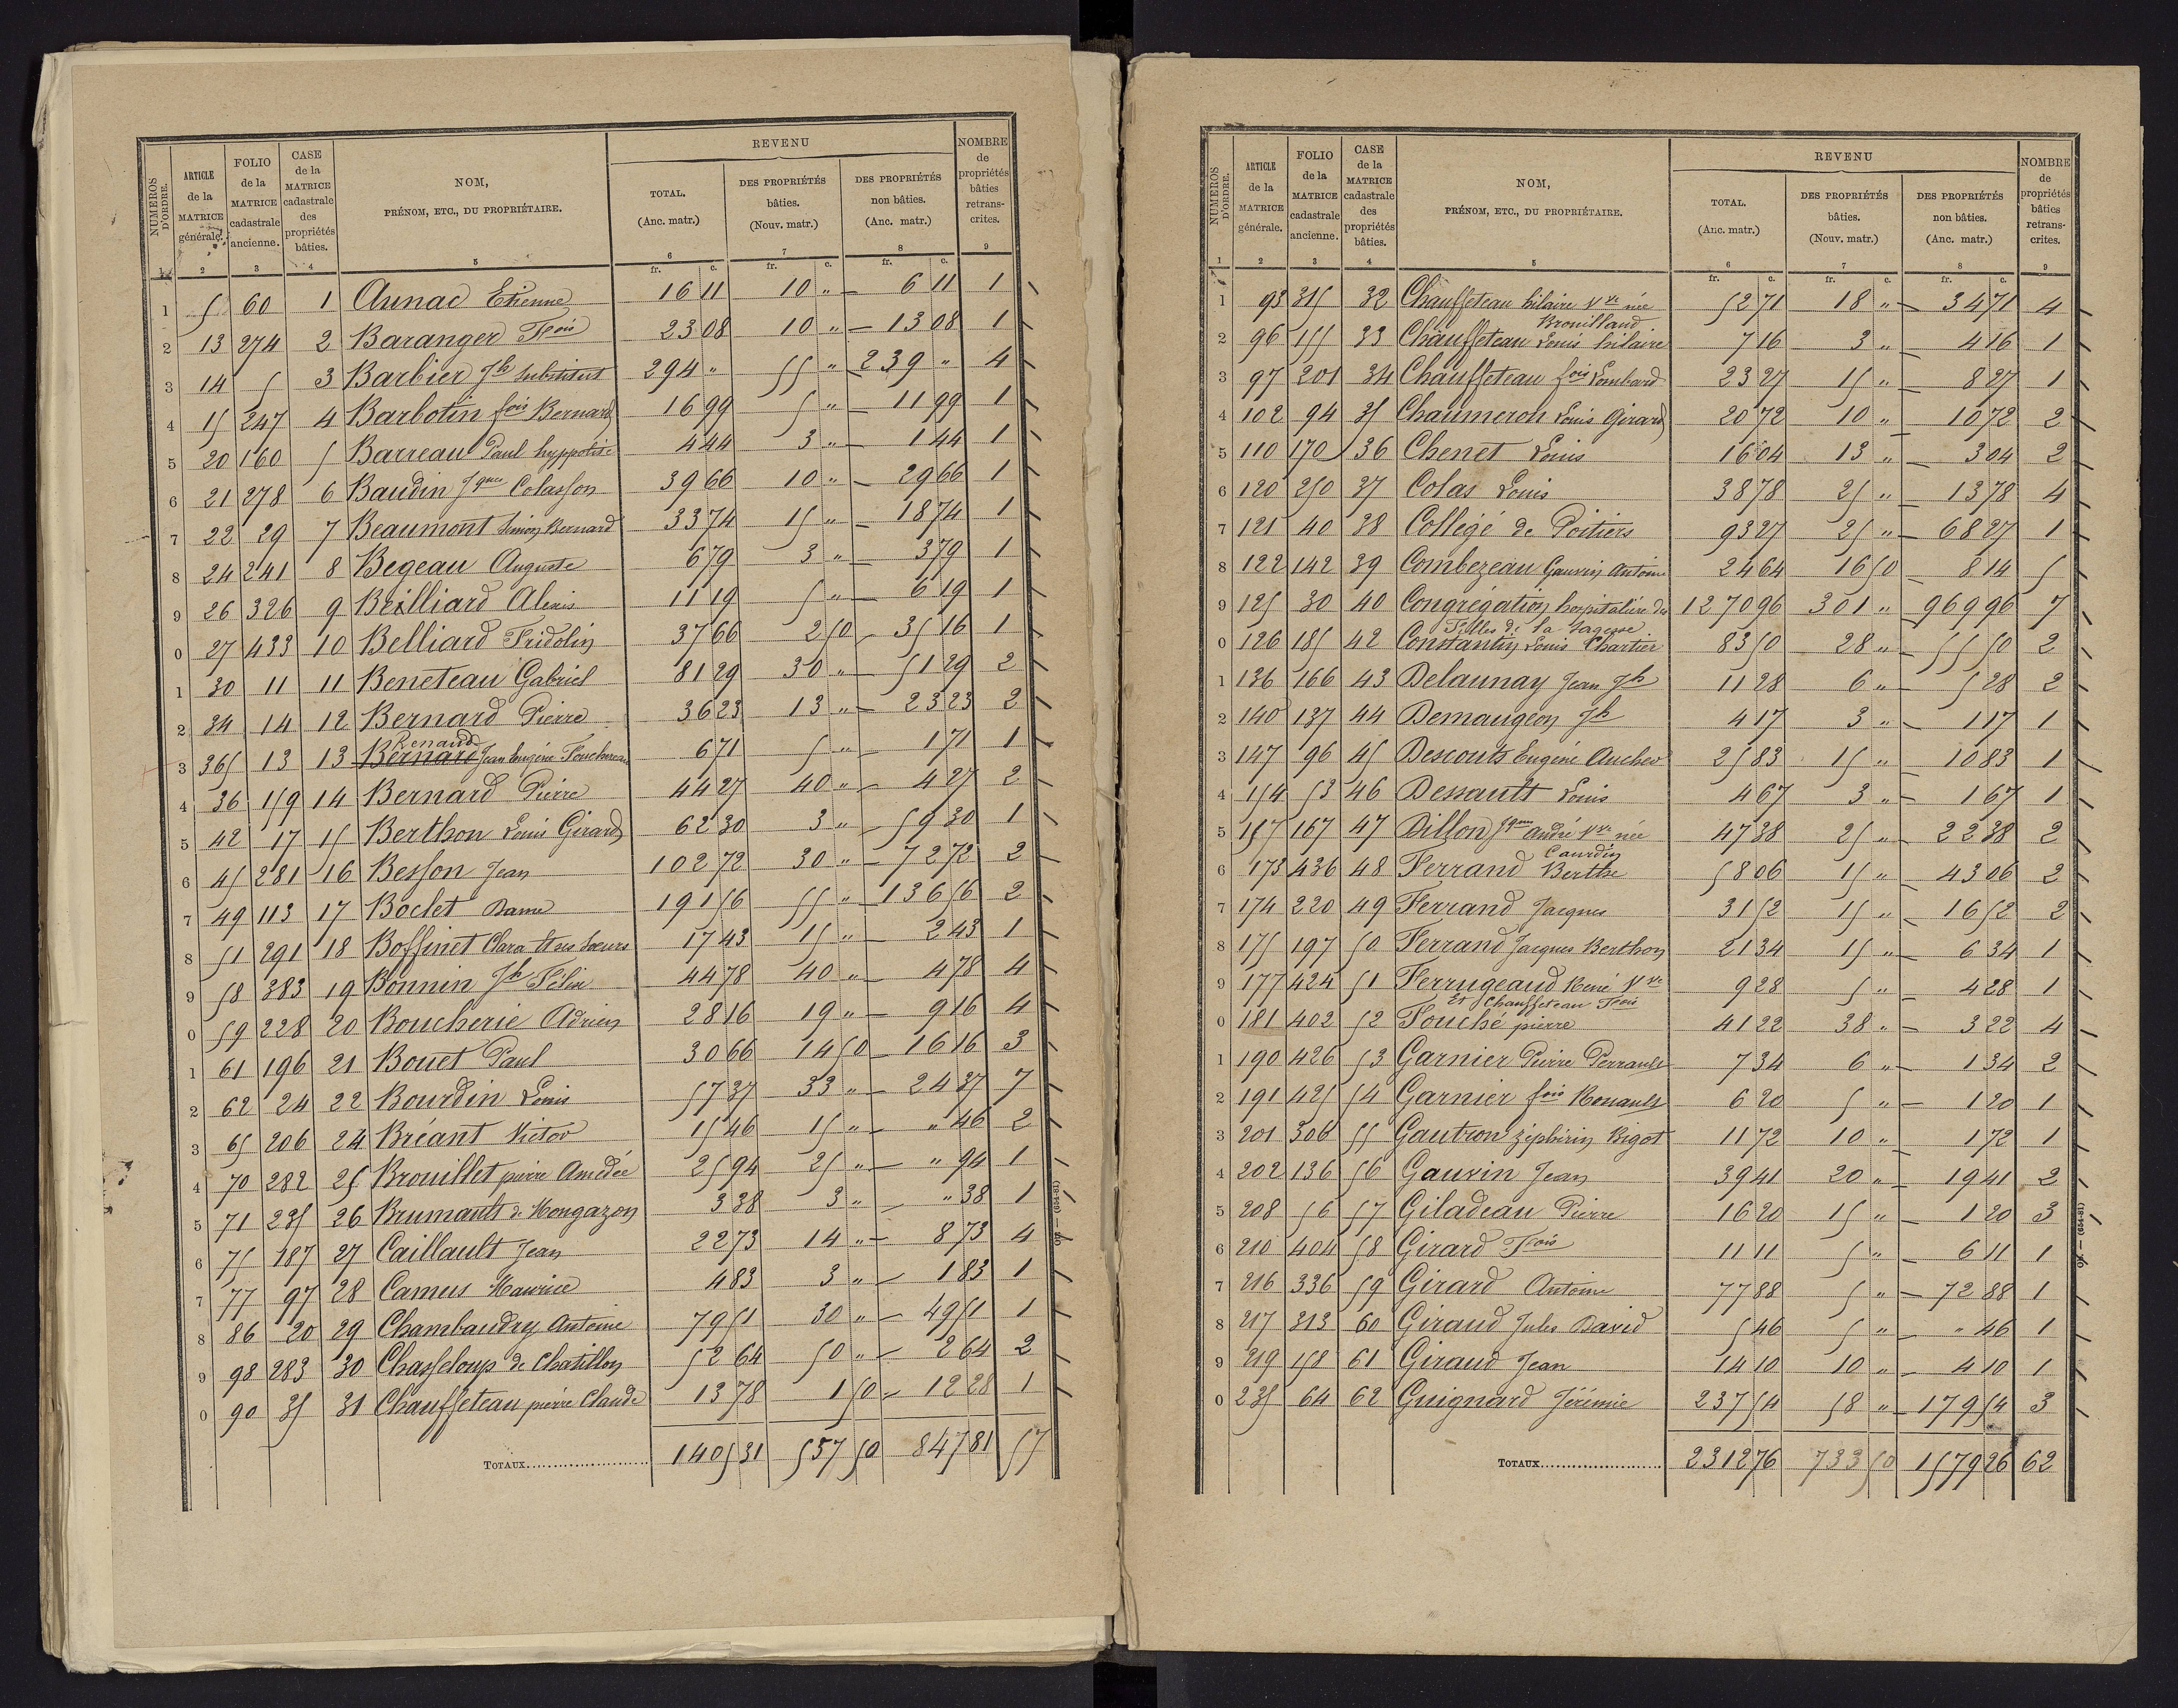 NUMÉROS D'ORDRE.
ARTICLE de la MATRICE générale.
FOLIO de la MATRICE cadastrale ancienne.
CASE de la MATRICE cadastrale des propriétés bâties.
NOM, PRÉNOM, ETC., DU PROPRIÉTAIRE.
REVENU
TOTAL. (Anc. matr.)
DES PROPRIÉTÉS bâties. (Nouv. matr.)
DES PROPRIÉTÉS non bâties. (Anc. matr.)
NOMBRE de propriétés bâties retranscrites.
1 2 3 4 5 6 7 8 9
fr. c. fr. c. fr. c.
1 5 60 1 Aunac Etienne 16 11 10 " 6 11 1
2 13 274 2 Baranger Fcois 23 08 10 " 13 08 1
3 14 5 3 Barbier Jh substitut 294 " 55 " 239 " 4
4 15 247 4 Barbotin fois Bernard 16 99 5 " 11 99 1
5 20 160 5 Barreau Paul hyppolite 4 44 3 " 1 44 1
6 21 278 6 Baudin Jques Colasson 39 66 10 " 29 66 1
7 22 29 7 Beaumont Simon Bernard 33 74 15 " 18 74 1
8 24 241 8 Begeau Auguste 6 79 3 " 3 79 1
9 26 326 9 Beilliard Alexis 11 19 5 " 6 19 1
0 27 433 10 Belliard Fridolin 37 66 2 50 35 16 1
1 30 11 11 Beneteau Gabriel 81 29 30 " 51 29 2
2 34 14 12 Bernard Pierre 36 23 13 " 23 23 2
Renaud
3 365 13 13 Bernard Jean Eugène Fouchereau 6 71 5 " 1 71 1
4 36 159 14 Bernard Pierre 44 27 40 " 4 27 2
5 42 17 15 Berthon Louis Girard 62 30 3 " 59 30 1
6 45 281 16 Besson Jean 102 72 30 " 72 72 2
7 49 113 17 Boclet Dame 191 56 55 " 136 56 2
8 51 291 18 Boffinet Clara et ses sœurs 17 43 15 " 2 43 1
9 58 383 19 Bonnin Jh Félix 44 78 40 " 4 78 4
0 59 228 20 Boucherie Adrien 28 16 19 " 9 16 4
1 61 196 21 Bouet Paul 30 66 14 50 16 16 3
2 62 24 22 Bourdin Louis 57 37 33 " 24 37 7
3 65 206 24 Bréant Victor 15 46 15 " " 46 2
4 70 282 25 Brouillet pierre Amédée 25 94 25 " " 94 1
5 71 235 26 Brumauts de Mongazon 3 38 3 " " 38 1
6 75 187 27 Caillault Jean 22 73 14 " 8 73 4
7 77 97 28 Camus Maurice 4 83 3 " 1 83 1
8 86 20 29 Chambaudry Antoine 79 51 30 " 49 51 1
9 98 283 30 Chasseloup de Chatillon 52 64 50 " 2 64 2
0 90 35 31 Chauffeteau pierre Claude 13 78 1 50 12 28 1
TOTAUX 1405 31 557 50 847 81 57
94 — (654-81)
NUMÉROS D'ORDRE.
ARTICLE de la MATRICE générale.
FOLIO de la MATRICE cadastrale ancienne.
CASE de la MATRICE cadastrale des propriétés bâties.
NOM, PRÉNOM, ETC., DU PROPRIÉTAIRE.
REVENU
TOTAL. (Anc. matr.)
DES PROPRIÉTÉS bâties. (Nouv. matr.)
DES PROPRIÉTÉS non bâties. (Anc. matr.)
NOMBRE de propriétés bâties retranscrites.
1 2 3 4 5 6 7 8 9
fr. c. fr. c. fr. c.
1 93 315 32 Chauffeteau hilaire Vve née 52 71 18 " 34 71 4
Brouilland
2 96 155 33 Chauffeteau Louis hilaire 7 16 3 " 4 16 1
3 97 201 34 Chauffeteau fois Lombard 23 27 15 " 8 27 1
4 102 94 35 Chaumeron Louis Girard 20 72 10 " 10 72 2
5 110 170 36 Chenet Louis 16 04 13 " 3 04 2
6 120 250 37 Colas Louis 38 78 25 " 13 78 4
7 121 40 38 Collégé de Poitiers 93 27 25 " 68 27 1
8 122 142 39 Combezeau Gauvin Antoine 24 64 16 50 8 14 5
9 125 30 40 Congrégation hospitalière des 1270 96 301 " 969 96 7
Filles de la Sagesse
0 126 185 42 Constantin Louis Chartier 83 50 28 " 55 50 2
1 136 166 43 Delaunay Jean Jh 11 28 6 " 5 28 2
2 140 137 44 Demaugeon Jh 4 17 3 " 1 17 1
3 147 96 45 Descouts Eugène Aucher 25 83 15 " 10 83 1
4 154 53 46 Dessault Louis 4 67 3 " 1 67 1
5 157 167 47 Dillon Jques andré Vve née 47 38 25 " 22 38 2
Courdin
6 173 436 48 Ferrand Berthe 58 06 15 " 43 06 2
7 174 220 49 Ferrand Jacques 31 52 15 " 16 52 2
8 175 197 50 Ferrand Jacques Berthon 21 34 15 " 6 34 1
9 177 424 51 Ferrugeaud René Vve 9 28 5 " 4 28 1
Et Chauffeteau Fcois
0 181 402 52 Fouché pierre 41 22 38 " 3 22 4
1 190 426 53 Garnier Pierre Perrault 7 34 6 " 1 34 2
2 191 425 54 Garnier fois Renault 6 20 5 " 1 20 1
3 201 306 55 Gautron zéphirin Bigot 11 72 10 " 1 72 1
4 202 136 56 Gauvin Jean 39 41 20 " 19 41 2
5 208 56 57 Giladeau Pierre 16 20 15 " 1 20 3
6 210 404 58 Girard Fcois 11 11 5 " 6 11 1
7 216 336 59 Girard Antoine 77 88 5 " 72 88 1
8 217 313 60 Giraud Jules David 5 46 5 " " 46 1
9 219 158 61 Giraud Jean 14 10 10 " 4 10 1
0 235 64 62 Guignard Jérémie 237 54 58 " 179 54 3
TOTAUX 2312 76 733 50 1579 26 62
94 — (654-81)